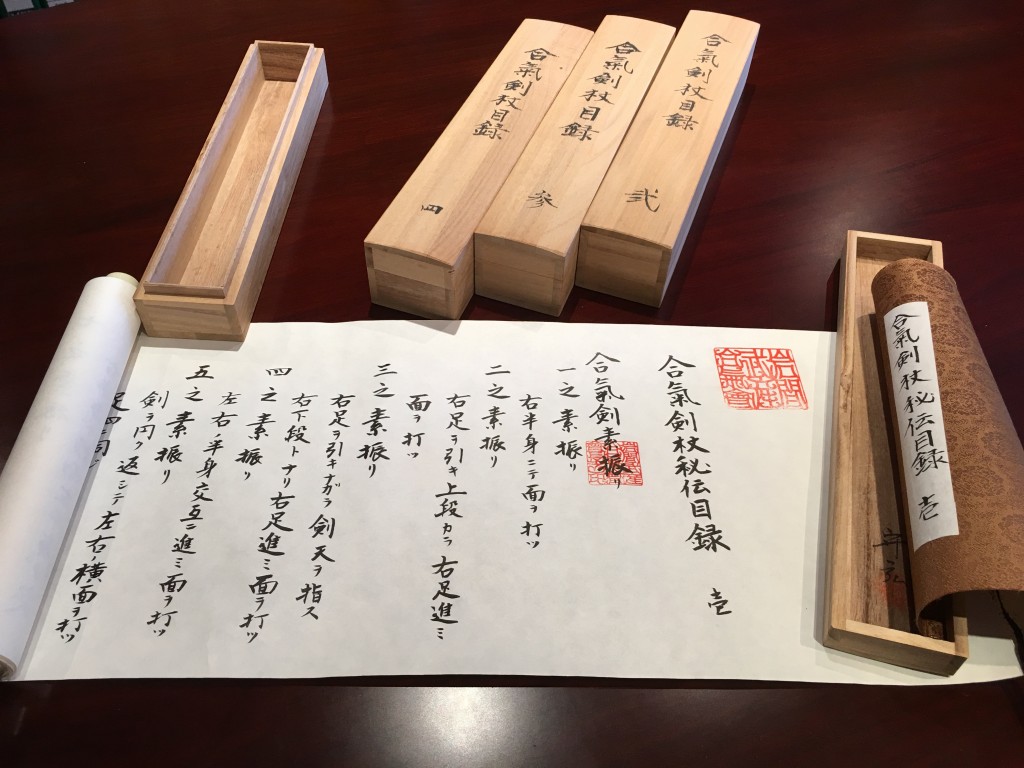 合氣剣杖目録 弐
合氣剣杖目録 参
合氣剣杖目録 四
合氣剣杖秘伝目録 壱
合氣剣杖秘伝目録 壱
合氣剣素振リ
一之素振リ
右半身ニテ面ヲ打ツ
二之素振リ
右足ヲ引キ上段カラ右足進ミ
面ヲ打ツ
三之素振リ
右足ヲ引キナガラ剣天ヲ指ス
右下段トナリ右足進ミ面ヲ打ツ
四之素振リ
左右ノ半身交互ニ進ミ面ヲ打ツ
五之素振リ
剣ヲ円ク返シテ左右ノ横面ヲ打ツ
足四